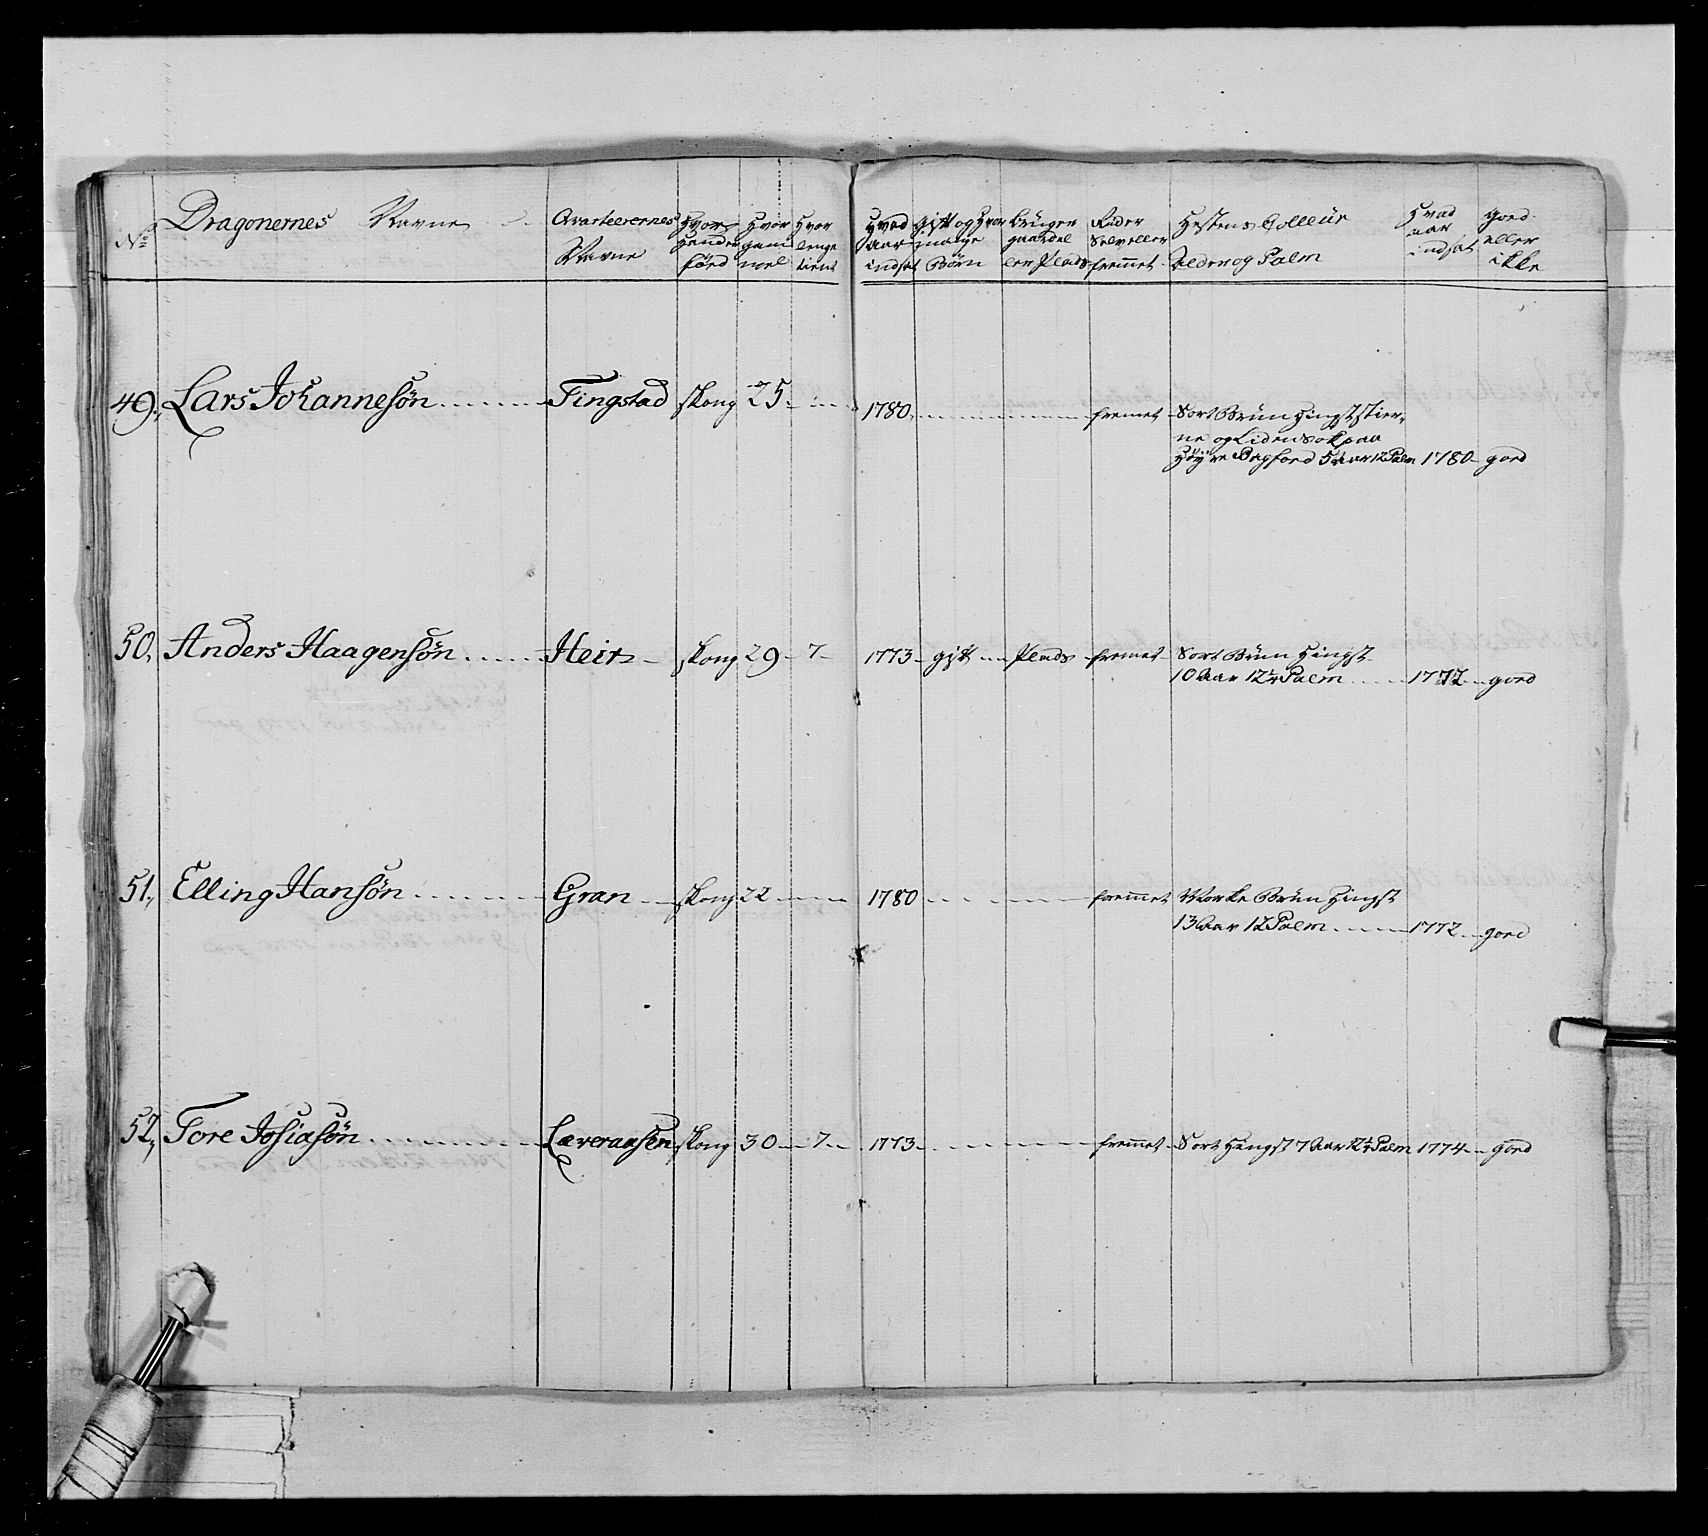 No Dragonernes Navne Qvarteerernes Navne Hvor Hender föed Hvor gam mel Hvor lenge tient Hvad aar indsat Gift og Hvor mange Börn bruger gaardel ler Plads Rider Selv eller fremmet Hestens Colleur Alder og Palm Hvad aar indsat goed eller ikke
49. Lars Johannesøn Tingstad skong 25 1780 fremet Sort Brun Hingst stier,
ne og Liden sok paa
Høyre Bagfoed 5 Aar 12 Palm 1780 goed
50. Anders Haagensøn Heir skong 29 7 1773 gift Plads fremet Sort Brun Hingst
10 Aar 12¼ Palm 1777 goed
51. Elling Hansøn Gran skong 22 1780 fremmet Mørke Brun Hingst
13 Aar 12 Palm 1772 goed
52. Tore Josiasøn Læveraasen skong 30 7 1773 fremmet Sort Hingst 7 Aar 12¼ Palm 1774 goed